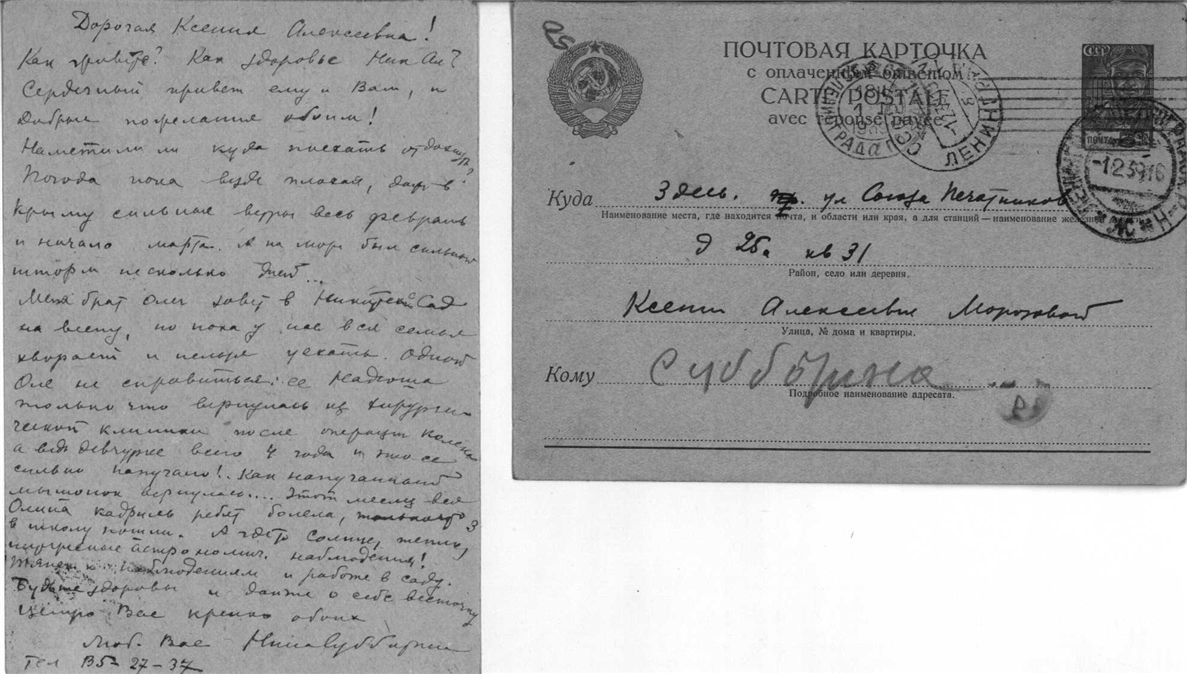 Дорогая Ксения Алексеевна!
Как живете? Как здоровье Ник Ал?
Сердечный привет ему и Вам, и
добрые пожелания обоим!
Наметили ли куда поехать отдохнуть?
Погода пока везде плохая, даже в
Крыму сильные ветры весь февраль
и начало марта. А на море был сильный
шторм несколько дней...
Меня брат Олег зовет в Никитский Сад
на весну, но пока у нас вся семья
хворает и нельзя уехать. Одной
Оле не справиться: ее Надюша
только что вернулась из хирурги-
ческой клиники после операции колена
а ведь девчурке всего 4 года и это ее
сильно напугало! Как напуганный
мышонок вернулась.... Этот месяц вся
Олина кадриль ребят болела, 3
в школу пошли. А где-то солнце, тепло,
интересные астрономич. наблюдения!
Тянет к наблюдениям и работе в саду.
Будьте здоровы и дайте о себе весточку
Целую Вас крепко обоих
Люб. Вас Нина Субботина
Тел В5-27-37
ПОЧТОВАЯ КАРТОЧКА
с оплаченным ответом
CARTE POSTALE
avec réponse payée
СССР
ЛЕНИНГРАД
-1.2.59.16
Куда Здесь. ул Союза Печатников
Наименование места, где находится почта, и области или края, а для станций — наименование
д 25а кв 31
Район, село или деревня.
Ксении Алексеевне Морозовой
Улица, № дома и квартиры.
Кому Субботина
Подробное наименование адресата.